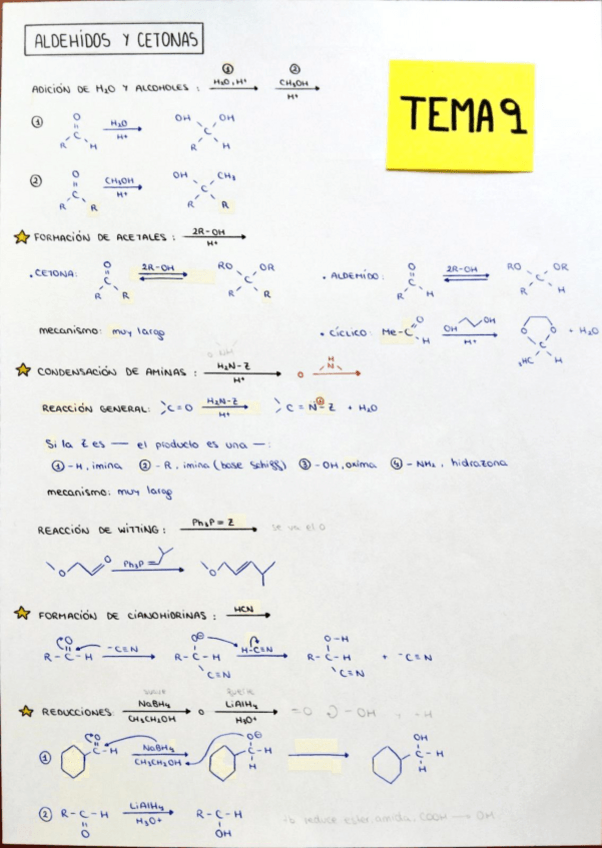 ALDEHÍDOS Y CETONAS
TEMA 9
ADICIÓN DE H₂O Y ALCOHOLES : ① H₂O, H⁺ ② CH₃OH H⁺
① O R C H H₂O H⁺ OH OH C R H
② O R C R CH₃OH H⁺ OH CH₃ C R R
FORMACIÓN DE ACETALES : 2R-OH H⁺
. CETONA: O C R R 2R-OH RO OR C R R
. ALDEHÍDO: O C R H 2R-OH RO OR C R H
mecanismo: muy largo
. CÍCLICO: Me-C O H OH OH H⁺ O O C H₃C H + H₂O
CONDENSACIÓN DE AMINAS : H₂N-Z H⁺ o H N
REACCIÓN GENERAL: C=O H₂N-Z H⁺ C=N-Z + H₂O
Si la Z es — el producto es una —:
① -H, imina ② -R, imina (base Schiff) ③ -OH, oxima ④ -NH₂, hidrazona
mecanismo: muy largo
REACCIÓN DE WITTING : Ph₃P=Z se va el O
O O Ph₃P O
FORMACIÓN DE CIANOHIDRINAS : HCN
O R-C-H ⁻C≡N O⊖ R-C-H C≡N H-C≡N O-H R-C-H C≡N + ⁻C≡N
REDUCCIONES: suave NaBH₄ CH₃CH₂OH o fuerte LiAlH₄ H₃O⁺ =O -OH y -H
① O C-H NaBH₄ CH₃CH₂OH O⊖ C-H H OH C-H H
② R-C-H O LiAlH₄ H₃O⁺ R-C-H OH reduce ester, amida, COOH → OH